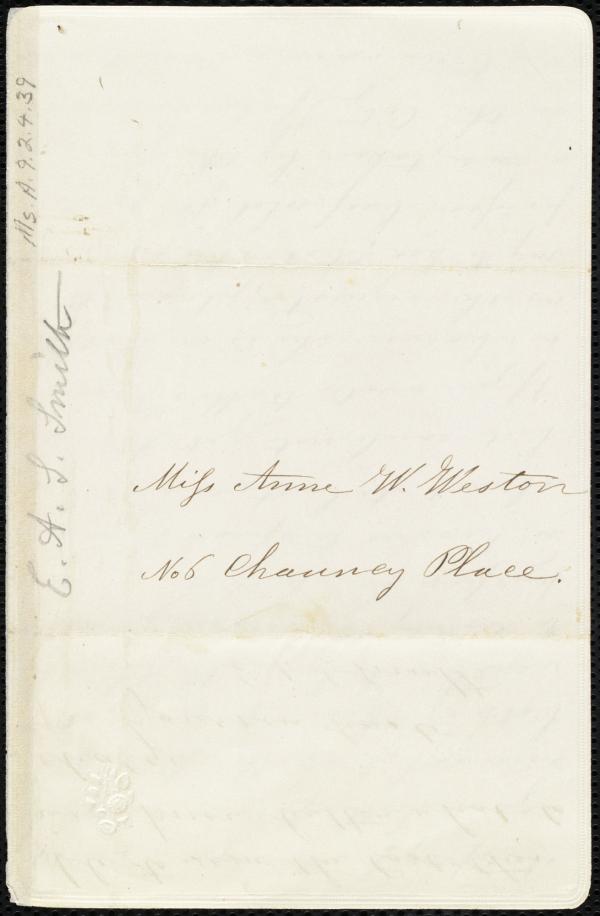 Ms. A. 9. 2. 4. 39
E. A. S. Smith
Miss Anne W. Weston
No 6 Chauncy Place.